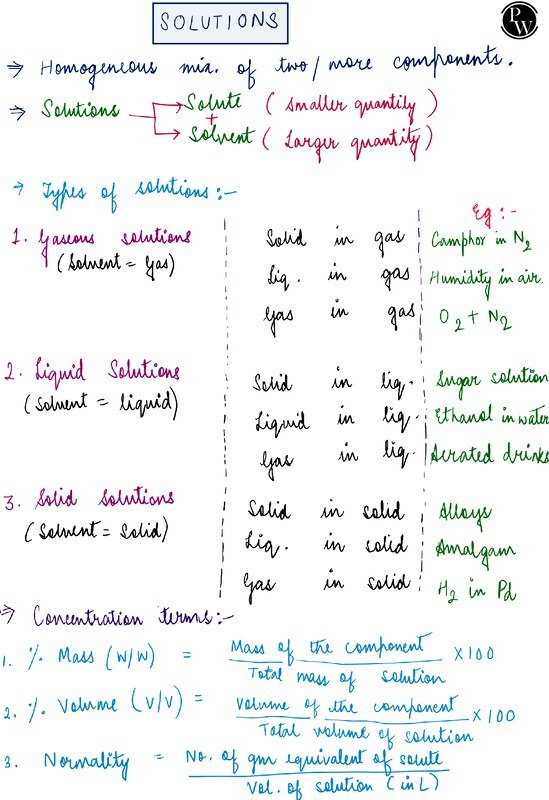 SOLUTIONS
PW
⇒ Homogeneous mix. of two/more components.
⇒ Solutions → Solute (smaller quantity)
+
→ Solvent (Larger quantity)
→ Types of solutions:-
Eg:-
1. Gaseous solutions Solid in gas Camphor in N₂
(Solvent = Gas) Liq. in gas Humidity in air.
Gas in gas O₂ + N₂
2. Liquid Solutions Solid in liq. Sugar solution
(Solvent = liquid) Liquid in liq. Ethanol in water
Gas in liq. Aerated drinks
3. Solid Solutions Solid in solid Alloys
(Solvent = Solid) Liq. in solid Amalgam
Gas in solid H₂ in Pd
⇒ Concentration terms:-
1. % Mass (W/W) = Mass of the component × 100
Total mass of solution
2. % Volume (V/V) = Volume of the component × 100
Total volume of solution
3. Normality = No. of gm equivalent of solute
Vol. of solution (in L)